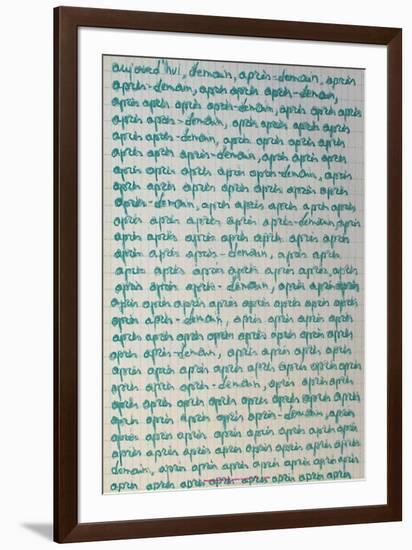 aujourd'hui, demain, après-demain, après
après-demain, après après après-demain,
après après après après-demain, après après après
après après-demain, après après après après
après après-demain, après après après après
après après après-demain, après après après
après après après après après-demain, après
après après après après après après après
après-demain, après après après après après
après après après après après-demain, après
après après après après après après après
après après après-demain, après après
après après après après après après après
après après après-demain, après après après
après après après après après après après après
après après-demain, après après après après
après après après après après après après après
après après-demain, après après après après
après après après après après après après
après après après-demain, après après après
après après après après après après après après
après après après après après-demain, après
après après après après après après après après
après après après après après après après après
demain, après après après après après après
après après après après après après après